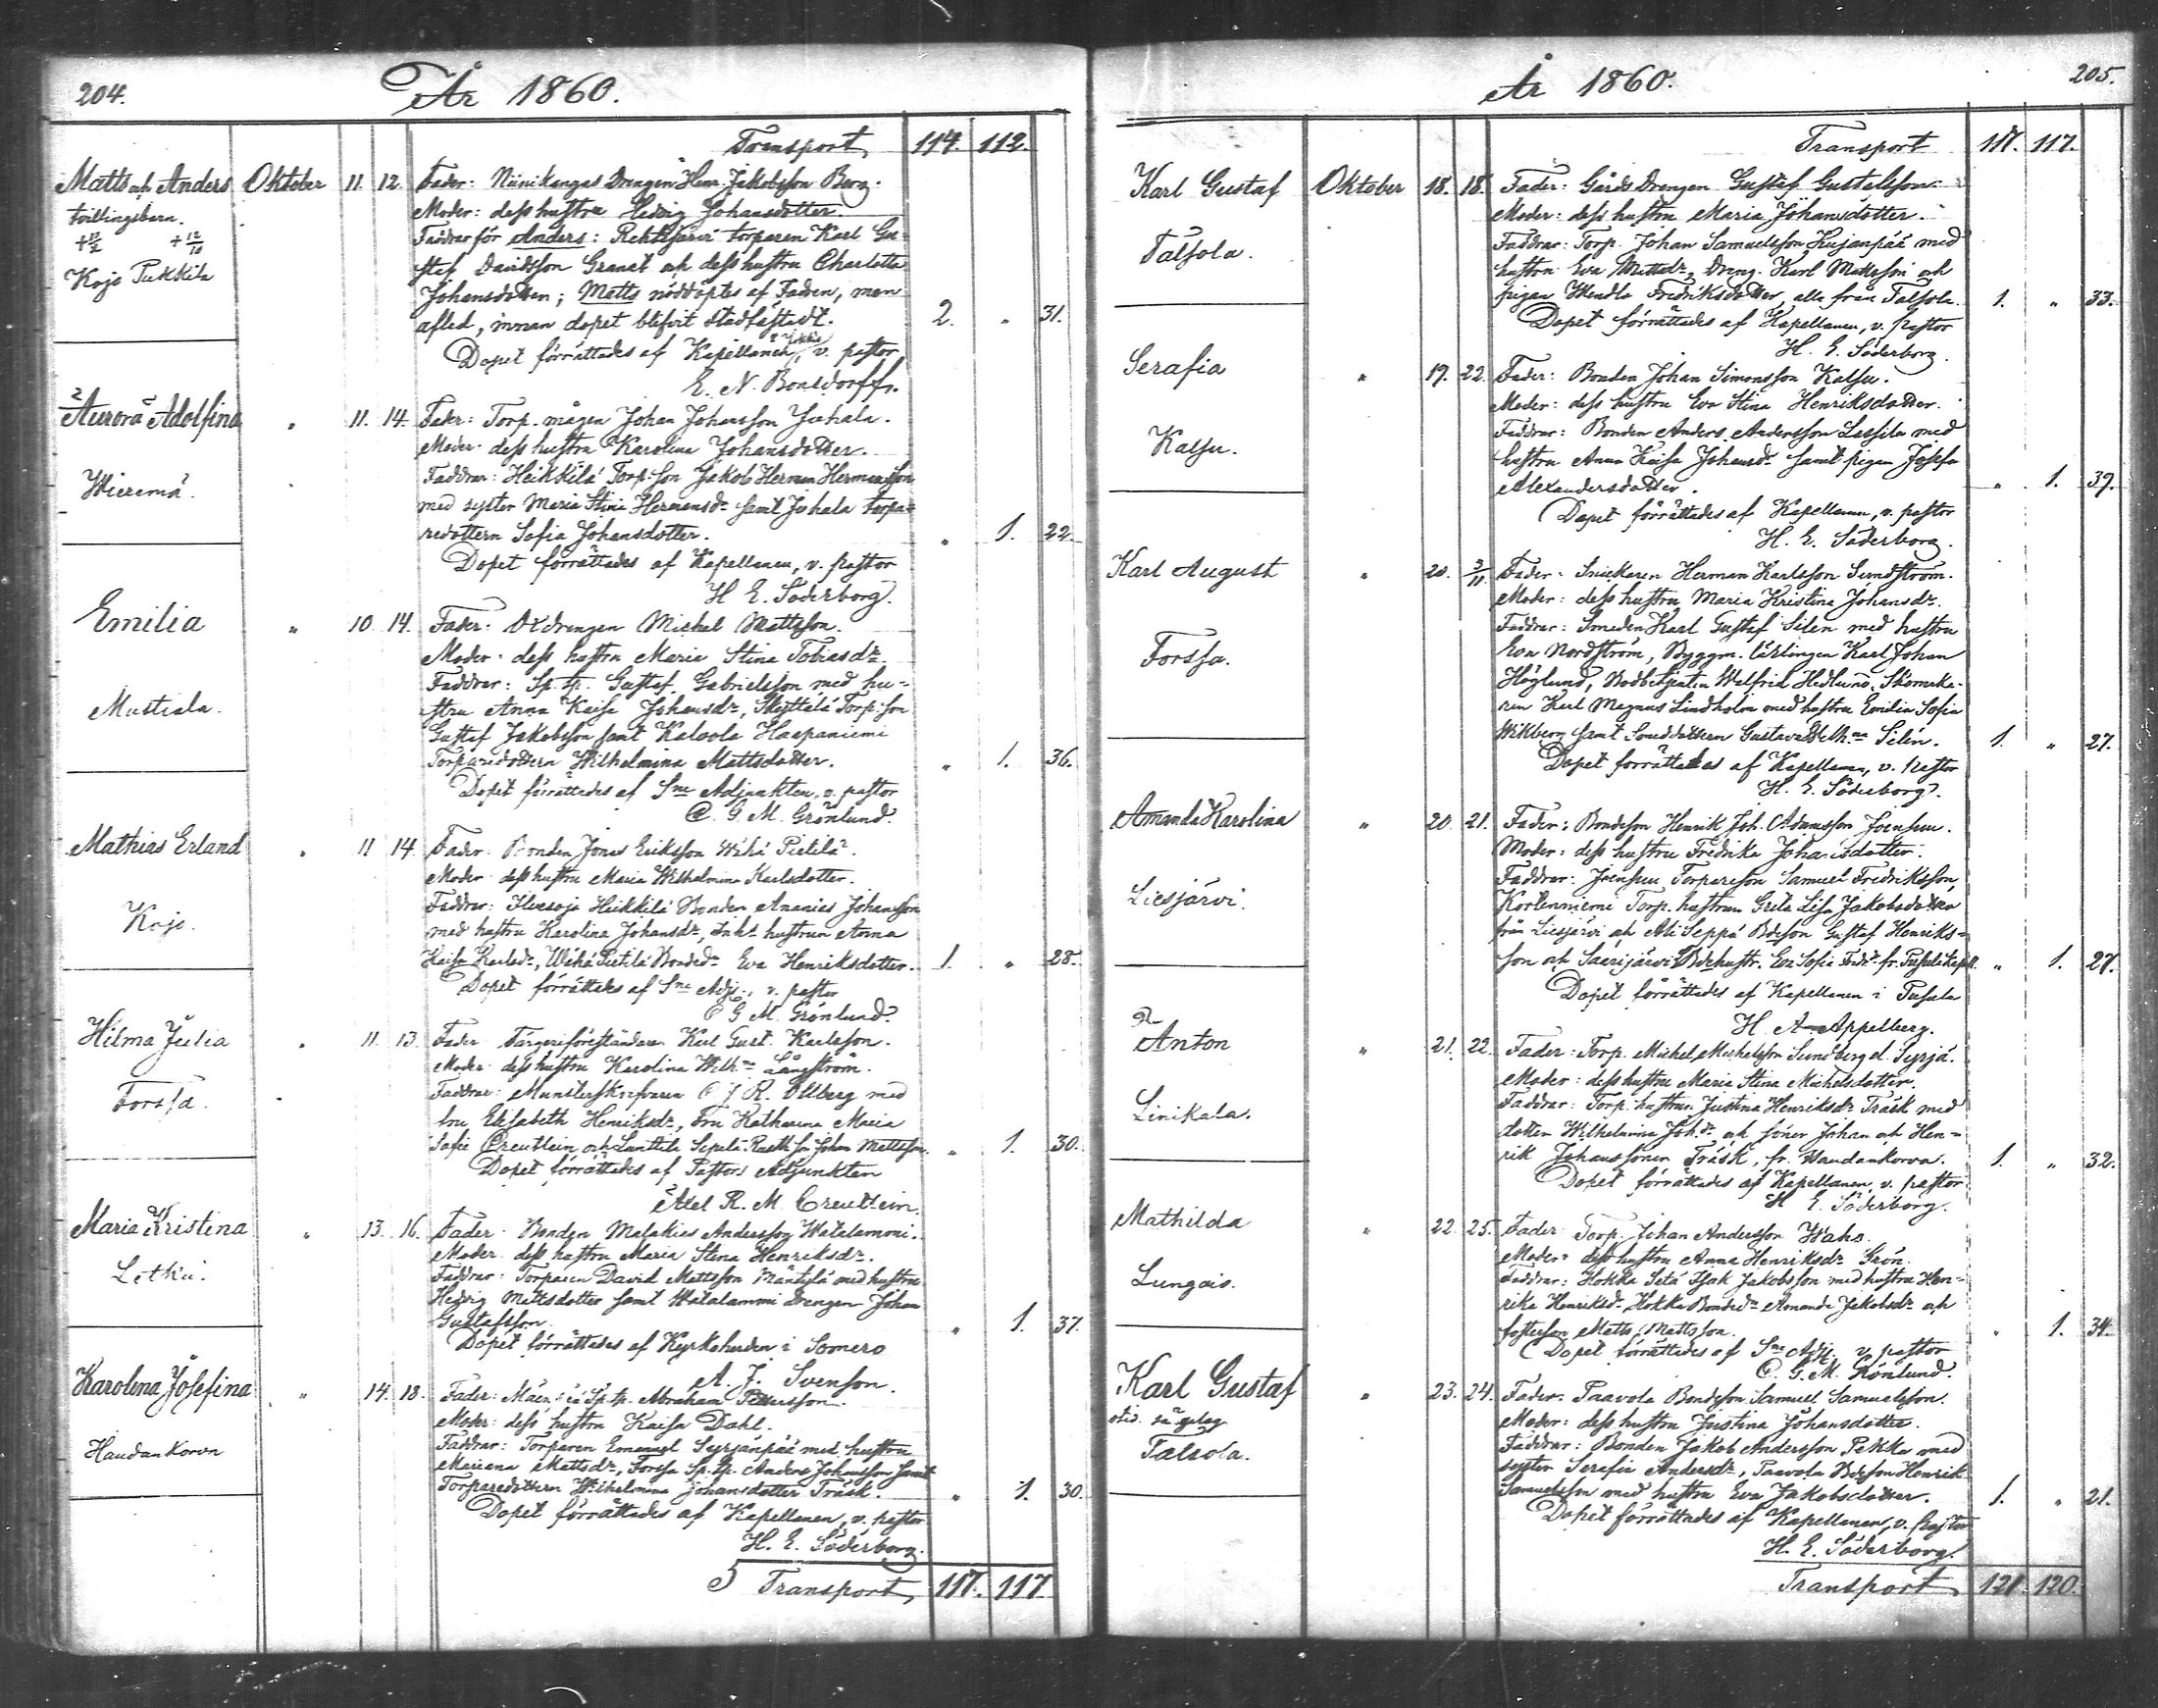 204.
År 1860.
Transport 114. 112.
Matts och Anders Oktober 11. 12. Fader: Niinikangas Drengen Henr. Jakobsson Berg.
tvillingsbarn.
Kojo Pukkila
Moder: dess hustru Hedvig Johansdotter.
Faddrar för Anders: Rehtijärvi torparen Karl Gu-
staf Davidsson Granat och dess hustru Charlotta
Johansdotter; Matts nöddöptes af Fadren, men
afled, innan dopet blifvit stadfästadt. 2. " 31.
Dopet förrättades af Kapellanen, v. pastor
E. N. Bonsdorff.
Aurora Adolfina " 11. 14. Fader: Torp. mågen Johan Johansson Juhala.
Wieremä.
Moder: dess hustru Karolina Johansdotter.
Faddrar: Heikkilä Torp. Son Jakob Herman Hermansson
med syster Maria Stina Hermansdr samt Juhala torpa-
redottern Sofia Johansdotter. " 1. 22.
Dopet förrättades af Kapellanen, v. pastor
H. E. Söderborg.
Emilia " 10. 14. Fader: Oxdrengen Michel Mattsson.
Mustiala.
Moder: dess hustru Maria Stina Tobiasdr.
Faddrar: Sp. tp. Gustaf Gabrielsson med hu-
stru Anna Kaisa Johansdr, Skyttälä Torp. son
Gustaf Jakobsson samt Kalvola Haapaniemi
Torparedottern Wilhelmina Mattsdotter. " 1. 36.
Dopet förrättades af Sne Adjunkten, v. pastor
C. G. M. Grönlund.
Mathias Erland " 11 14. Fader: Bonden Jonas Eriksson Wähä Pietilä.
Kojo.
Moder: dess hustru Maria Wilhelmina Karlsdotter.
Faddrar: Ilvesoja Heikkilä Bonden Ananias Johansson
med hustru Karolina Johansdr, Inh. hustrun Anna
Kaisa Karlsdr, Wähä Pietilä Bondedr Eva Henriksdotter. 1. " 28.
Dopet förrättades af Sne Adj., v. pastor
C G M. Grönlund.
Hilma Julia " 11. 13. Fader Färgeriföreståndaren Karl Gust. Karlsson.
Forssa.
Moder: dess hustru Karolina Wilhna Långström.
Faddrar: R. Ollberg med
fru Elisabeth Henriksdr, Fru Katharina Maria
Sofie Creutlein och Lunttila Seppälä Johan Mattsson. " 1. 30.
Dopet förrättades af Pastors Adjunkten
Axel R. M. Creutlein.
Maria Kristina " 13. 16. Fader: Bonden Malakias Andersson Watalammi.
Letku.
Moder: dess hustru Maria Stina Henriksdr.
Faddrar: Torparen David Mattsson Mäntylä med hustru
Hedvig Mattsdotter samt Watalammi Drengen Johan
Gustafsson. " 1. 37.
Dopet förrättades af Kyrkoherden i Somero
A. J. Svenson.
Karolina Josefina " 14. 18. Fader: Sp. tp. Abraham Pettersson.
Haudankorva
Moder: dess hustru Kaisa Dahl.
Faddrar: Torparen Emanuel Syrjänpää med hustru
Mariana Mattsdr, Forssa Sp. tp. Anders Johansson samt
Torparedottern Wilhelmina Johansdotter Träsk. " 1. 30.
Dopet förrättades af Kapellanen, v. pastor
H. E. Söderborg.
Transport, 117. 117.
År 1860.
205.
Transport 117. 117.
Karl Gustaf Oktober 18. 18. Fader: Gårds Drengen Gustaf Gustafsson.
Talsola.
Moder: dess hustru Maria Johansdotter.
Faddrar: Torp. Johan Samuelsson Kujanpää med
hustru Eva Mattsdr, Dreng. Karl Mattsson och
pigan Wendla Fredriksdotter, alla från Talsola. 1. " 33.
Dopet förrättades af Kapellanen, v. pastor
H. E. Söderborg.
Serafia " 19. 22. Fader: Bonden Johan Simonsson Kalsu.
Kalsu.
Moder: dess hustru Eva Stina Henriksdotter.
Faddrar: Bonden Anders Andersson Lassila med
hustru Anna Kaisa Johansdr samt pigan Josefa
Alexandersdotter. " 1. 39.
Dopet förrättades af Kapellanen, v. pastor
H. E. Söderborg.
Karl August " 20. 3/11. Fader: Snickaren Herman Karlsson Sundström.
Forssa.
Moder: dess hustru Maria Kristina Johansdr.
Faddrar: Smeden Karl Gustaf Silen med hustru
Eva Nordström, Byggm. lärlingen Karl Johan
Höglund, Bodbetjenten Walfrid Hedlund, Skomaka-
ren Karl Magnus Lindholm med hustru Emilia Sofia
Wikberg samt Smeddottern Gustava Wilhna Silén. 1. " 27.
Dopet förrättades af Kapellanen, v. Pastor
H. E. Söderborg.
Amanda Karolina " 20. 21. Fader: Bondeson Henrik Joh. Adamsson Joensuu.
Liesjärvi.
Moder: dess hustru Fredrika Johansdotter.
Faddrar: Joensuu Torpareson Samuel Fredriksson,
Korteniemi Torp. hustrun Greta Lisa Jakobsdotter
från Liesjärvi och Ali Seppä Bdeson Gustaf Henriks-
son och Saarijärvi Bdehustr. Eva Sofia fr. Pusula Kapell. " 1. 27.
Dopet förrättades af Kapellanen i Pusula
H. A. Appelberg.
Anton " 21. 22. Fader: Torp. Michel Michelsson Sundberg el. Syrjä.
Linikala.
Moder: dess hustru Maria Stina Michelsdotter.
Faddrar: Torp. hustrun Justina Henriksdr Träsk med
dotter Wilhelmina Joh.dr och söner Johan och Hen-
rik Johanssöner Träsk, fr. Haudankorva. 1. " 32.
Dopet förrättades af Kapellanen, v. pastor
H E. Söderborg.
Mathilda " 22. 25. Fader: Torp. Johan Andersson Waho.
Lungois.
Moder: dess hustru Anna Henriksdr Grön.
Faddrar: Hokka Isak Jakobsson med hustru Hen-
rika Henriksdr, Hokka Bondedr Amanda Jakobsdr och
fosterson Matts Mattsson. " 1. 34.
Dopet förrättades af Sne Adj. v. pastor
C. G. M. Grönlund.
Karl Gustaf " 23. 24. Fader: Paavola Bondeson Samuel Samuelsson.
Talsola.
Moder: dess hustru Justina Johansdotter.
Faddrar: Bonden Jakob Andersson Pekka med
syster Serafia Andersdr, Paavola Bdeson Henrik
Samuelsson med hustru Eva Jakobsdotter. 1. " 21.
Dopet förrättades af Kapellanen, v. Pastor
H. E. Söderborg.
Transport 121. 120.